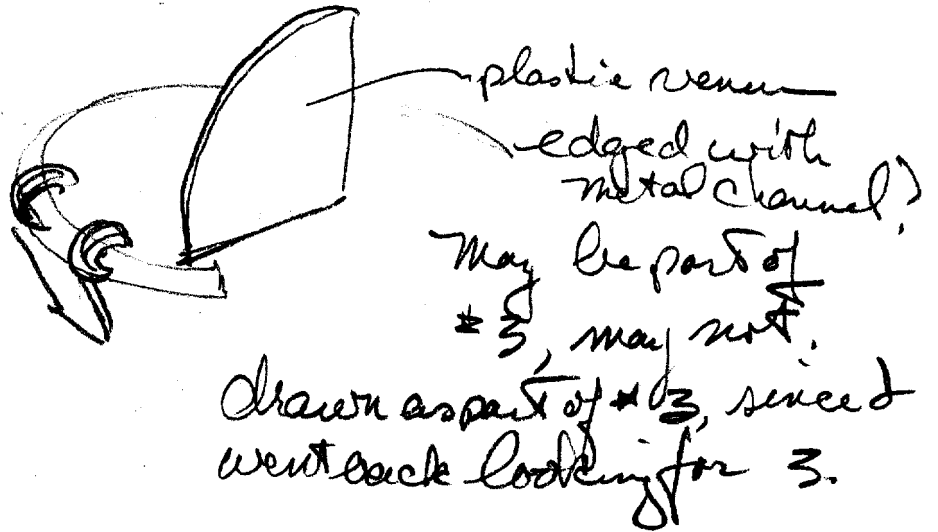 plastic veneer
edged with
metal channel?
May be part of
#3, may not.
drawn as part of #3, since I
went back looking for 3.